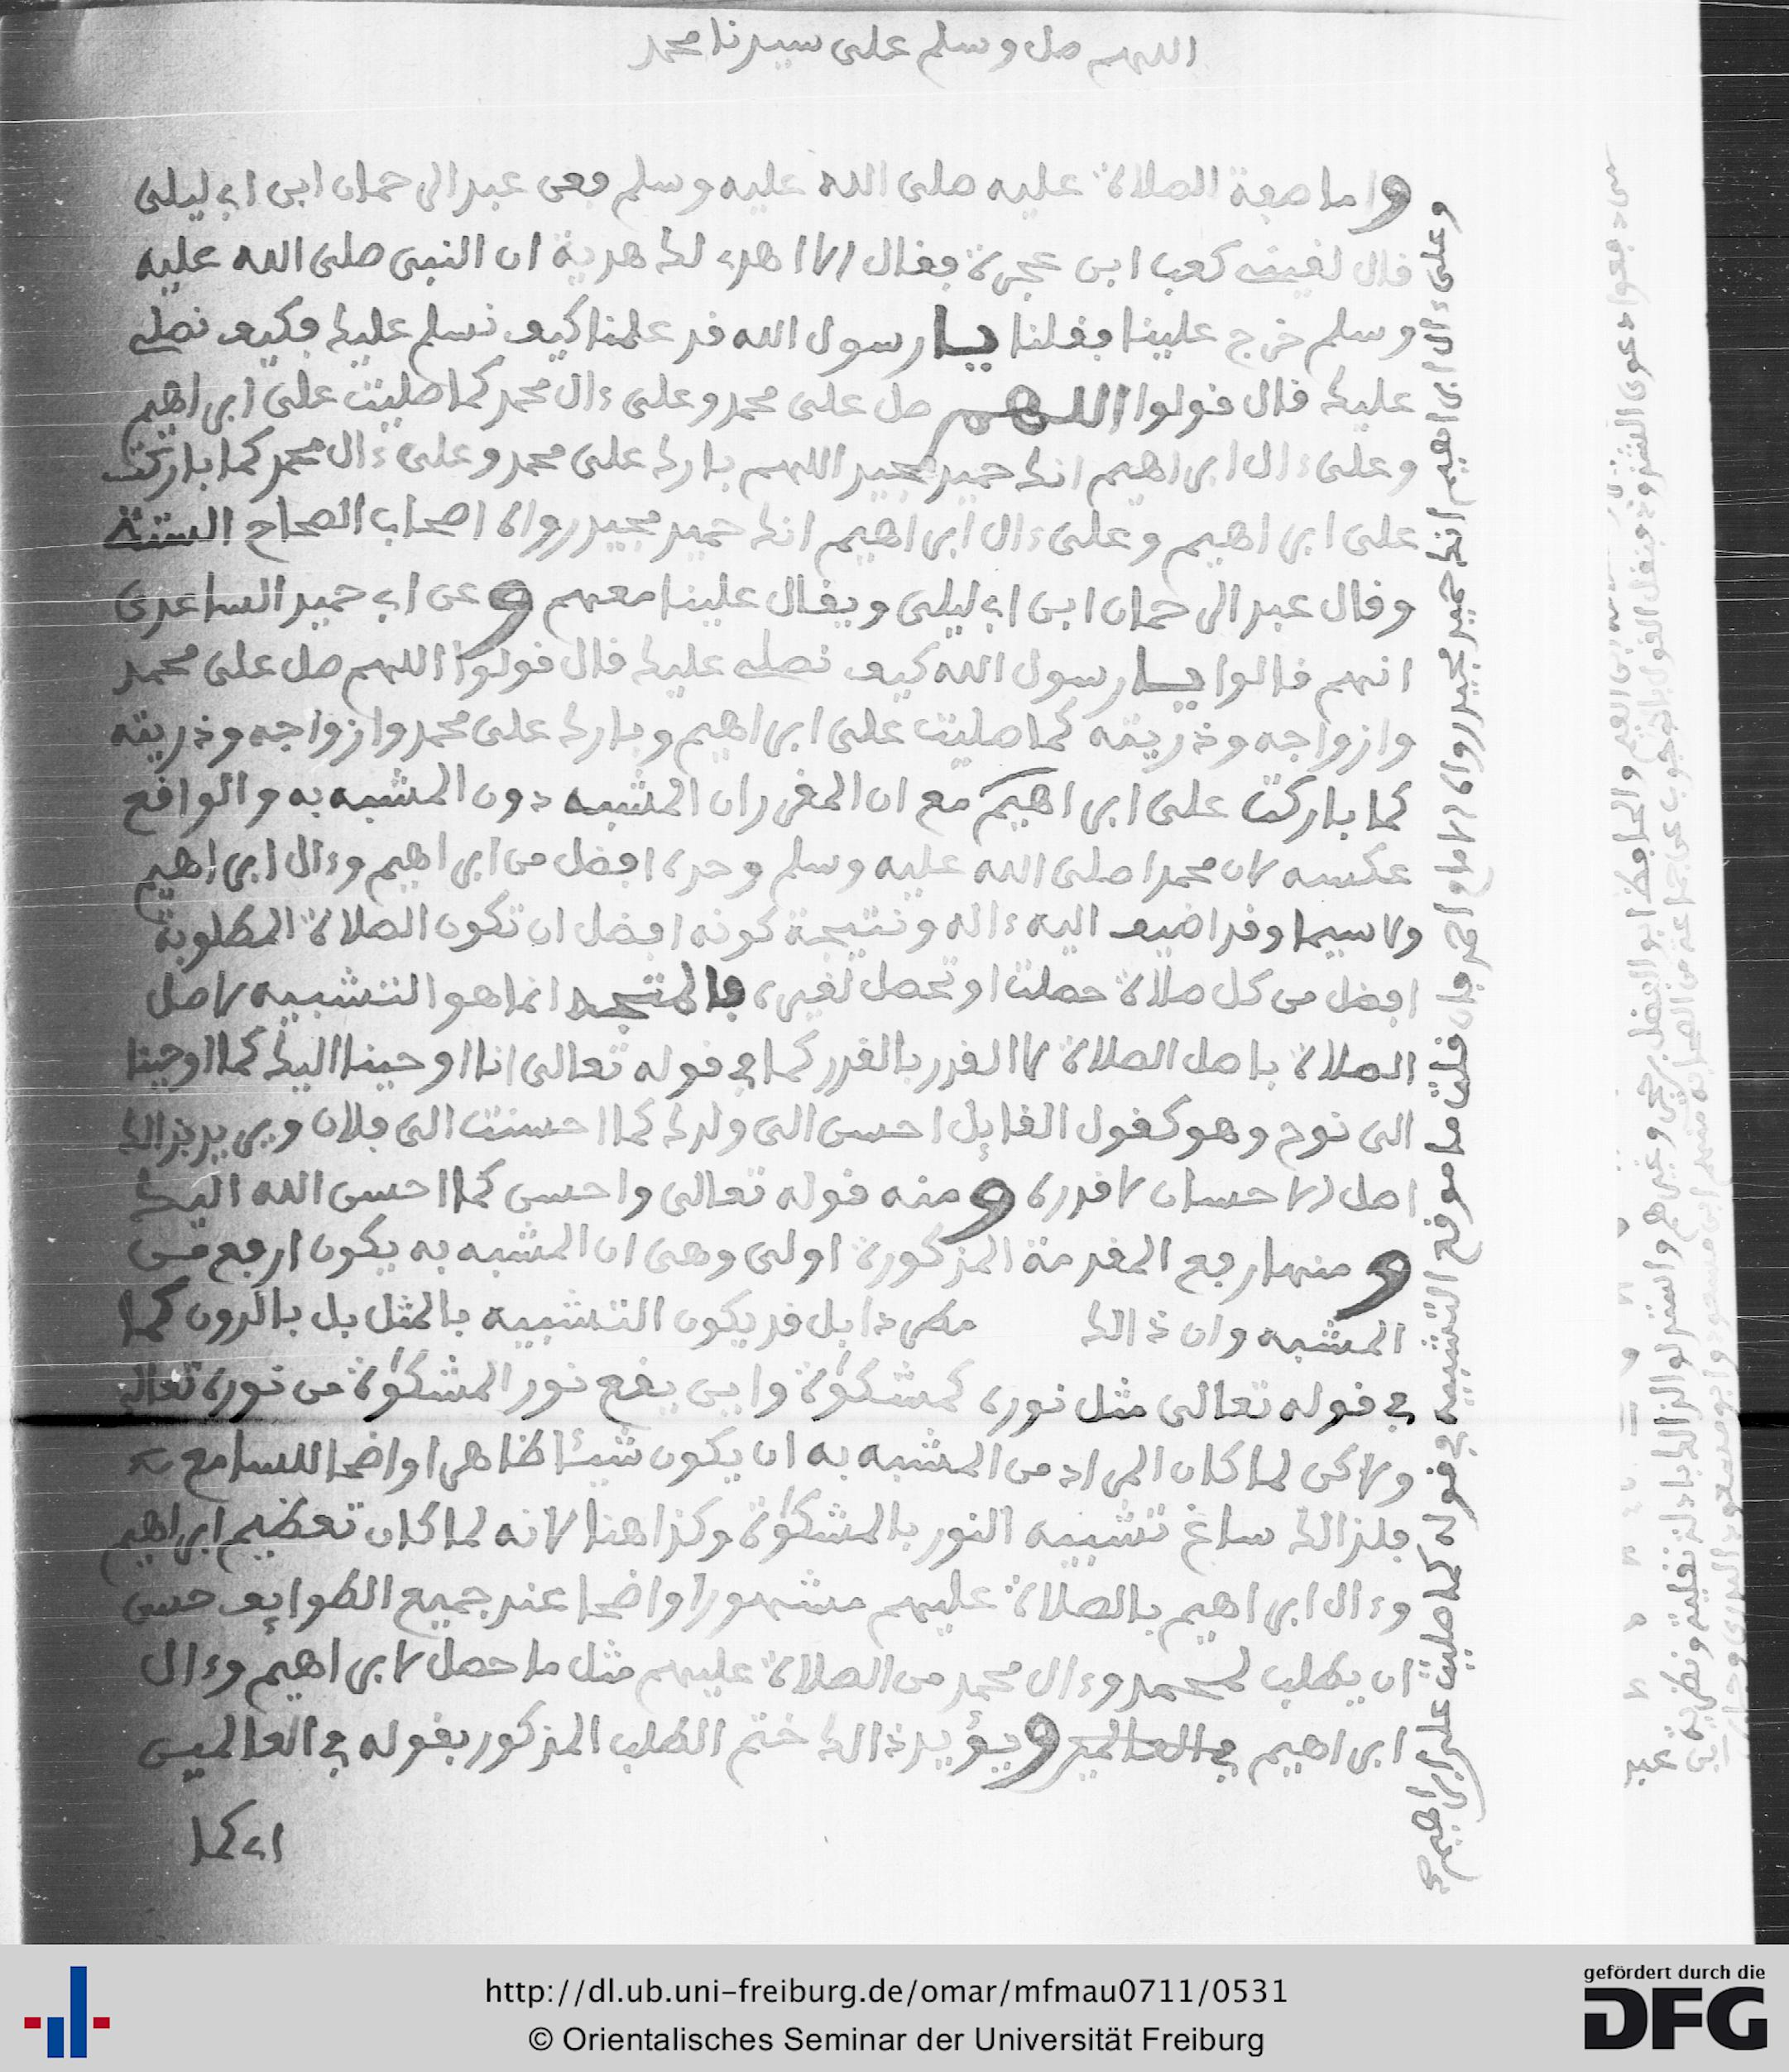 اللهم صل وسلم على سيدنا محمد
واما صفة الصلاة عليه صلى الله عليه وسلم فعن عبد الرحمان ابن ابي ليلى
قال لقيني كعب ابن عجرة فقال الا اهدي لك هدية ان النبي صلى الله عليه
وسلم خرج علينا فقلنا يا رسول الله قد علمنا كيف نسلم عليك فكيف نصلي
عليك قال قولوا اللهم صل على محمد وعلى ءال محمد كما صليت على ابراهيم
وعلى ءال ابراهيم انك حميد مجيد اللهم بارك على محمد وعلى ءال محمد كما باركت
على ابراهيم وعلى ءال ابراهيم انك حميد مجيد رواه اصحاب الصحاح الستة
وقال عبد الرحمان ابن ابي ليلى ويقال علينا معهم وعن ابي حميد الساعدي
انهم قالوا يا رسول الله كيف نصلي عليك قال قولوا اللهم صل على محمد
وازواجه وذريته كما صليت على ابراهيم وبارك على محمد وازواجه وذريته
كما باركت على ابراهيم مع ان المقرر ان المشبه دون المشبه به والواقع
عكسه لان محمدا صلى الله عليه وسلم وحده افضل من ابراهيم وءال ابراهيم
ولا سيما وقد اضيف اليه ءاله ونتيجة كونه افضل ان تكون الصلاة المطلوبة
افضل من كل صلاة حصلت او تحصل لغيره فالمتجه انما هو التشبيه لاصل
الصلاة باصل الصلاة لا القدر بالقدر كما في قوله تعالى انا اوحينا اليك كما اوحينا
الى نوح وهو كقول القايل احسن الى ولدك كما احسنت الى فلان ويريد بذالك
اصل الاحسان لا قدره ومنه قوله تعالى واحسن كما احسن الله اليك
ومنها رفع المقدمة المذكورة اولى وهي ان المشبه به يكون ارفع من
المشبه وان ذالك مطردا بل قد يكون التشبيه بالمثل بل بالدون كما
في قوله تعالى مثل نوره كمشكوة واين يقع نور المشكوة من نوره تعالى
ولاكن لما كان المراد من المشبه به ان يكون شيئا ظاهرا واضحا للسامع
فلذالك ساغ تشبيه النور بالمشكوة وكذا هنا لانه لما كان تعظيم ابراهيم
وءال ابراهيم بالصلاة عليهم مشهورا واضحا عند جميع الطوايف حسن
ان يطلب لمحمد وءال محمد من الصلاة عليهم مثل ما حصل لابراهيم وءال
ابراهيم في العالمين ويؤيد ذالك ختم الطلب المذكور بقوله في العالمين
اي كما
وعلى ءال ابراهيم انك حميد مجيد رواه الامام احمد فان قلت ما موقع التشبيه في قوله كما صليت على ابراهيم
http://dl.ub.uni-freiburg.de/omar/mfmau0711/0531
© Orientalisches Seminar der Universität Freiburg
gefördert durch die
DFG